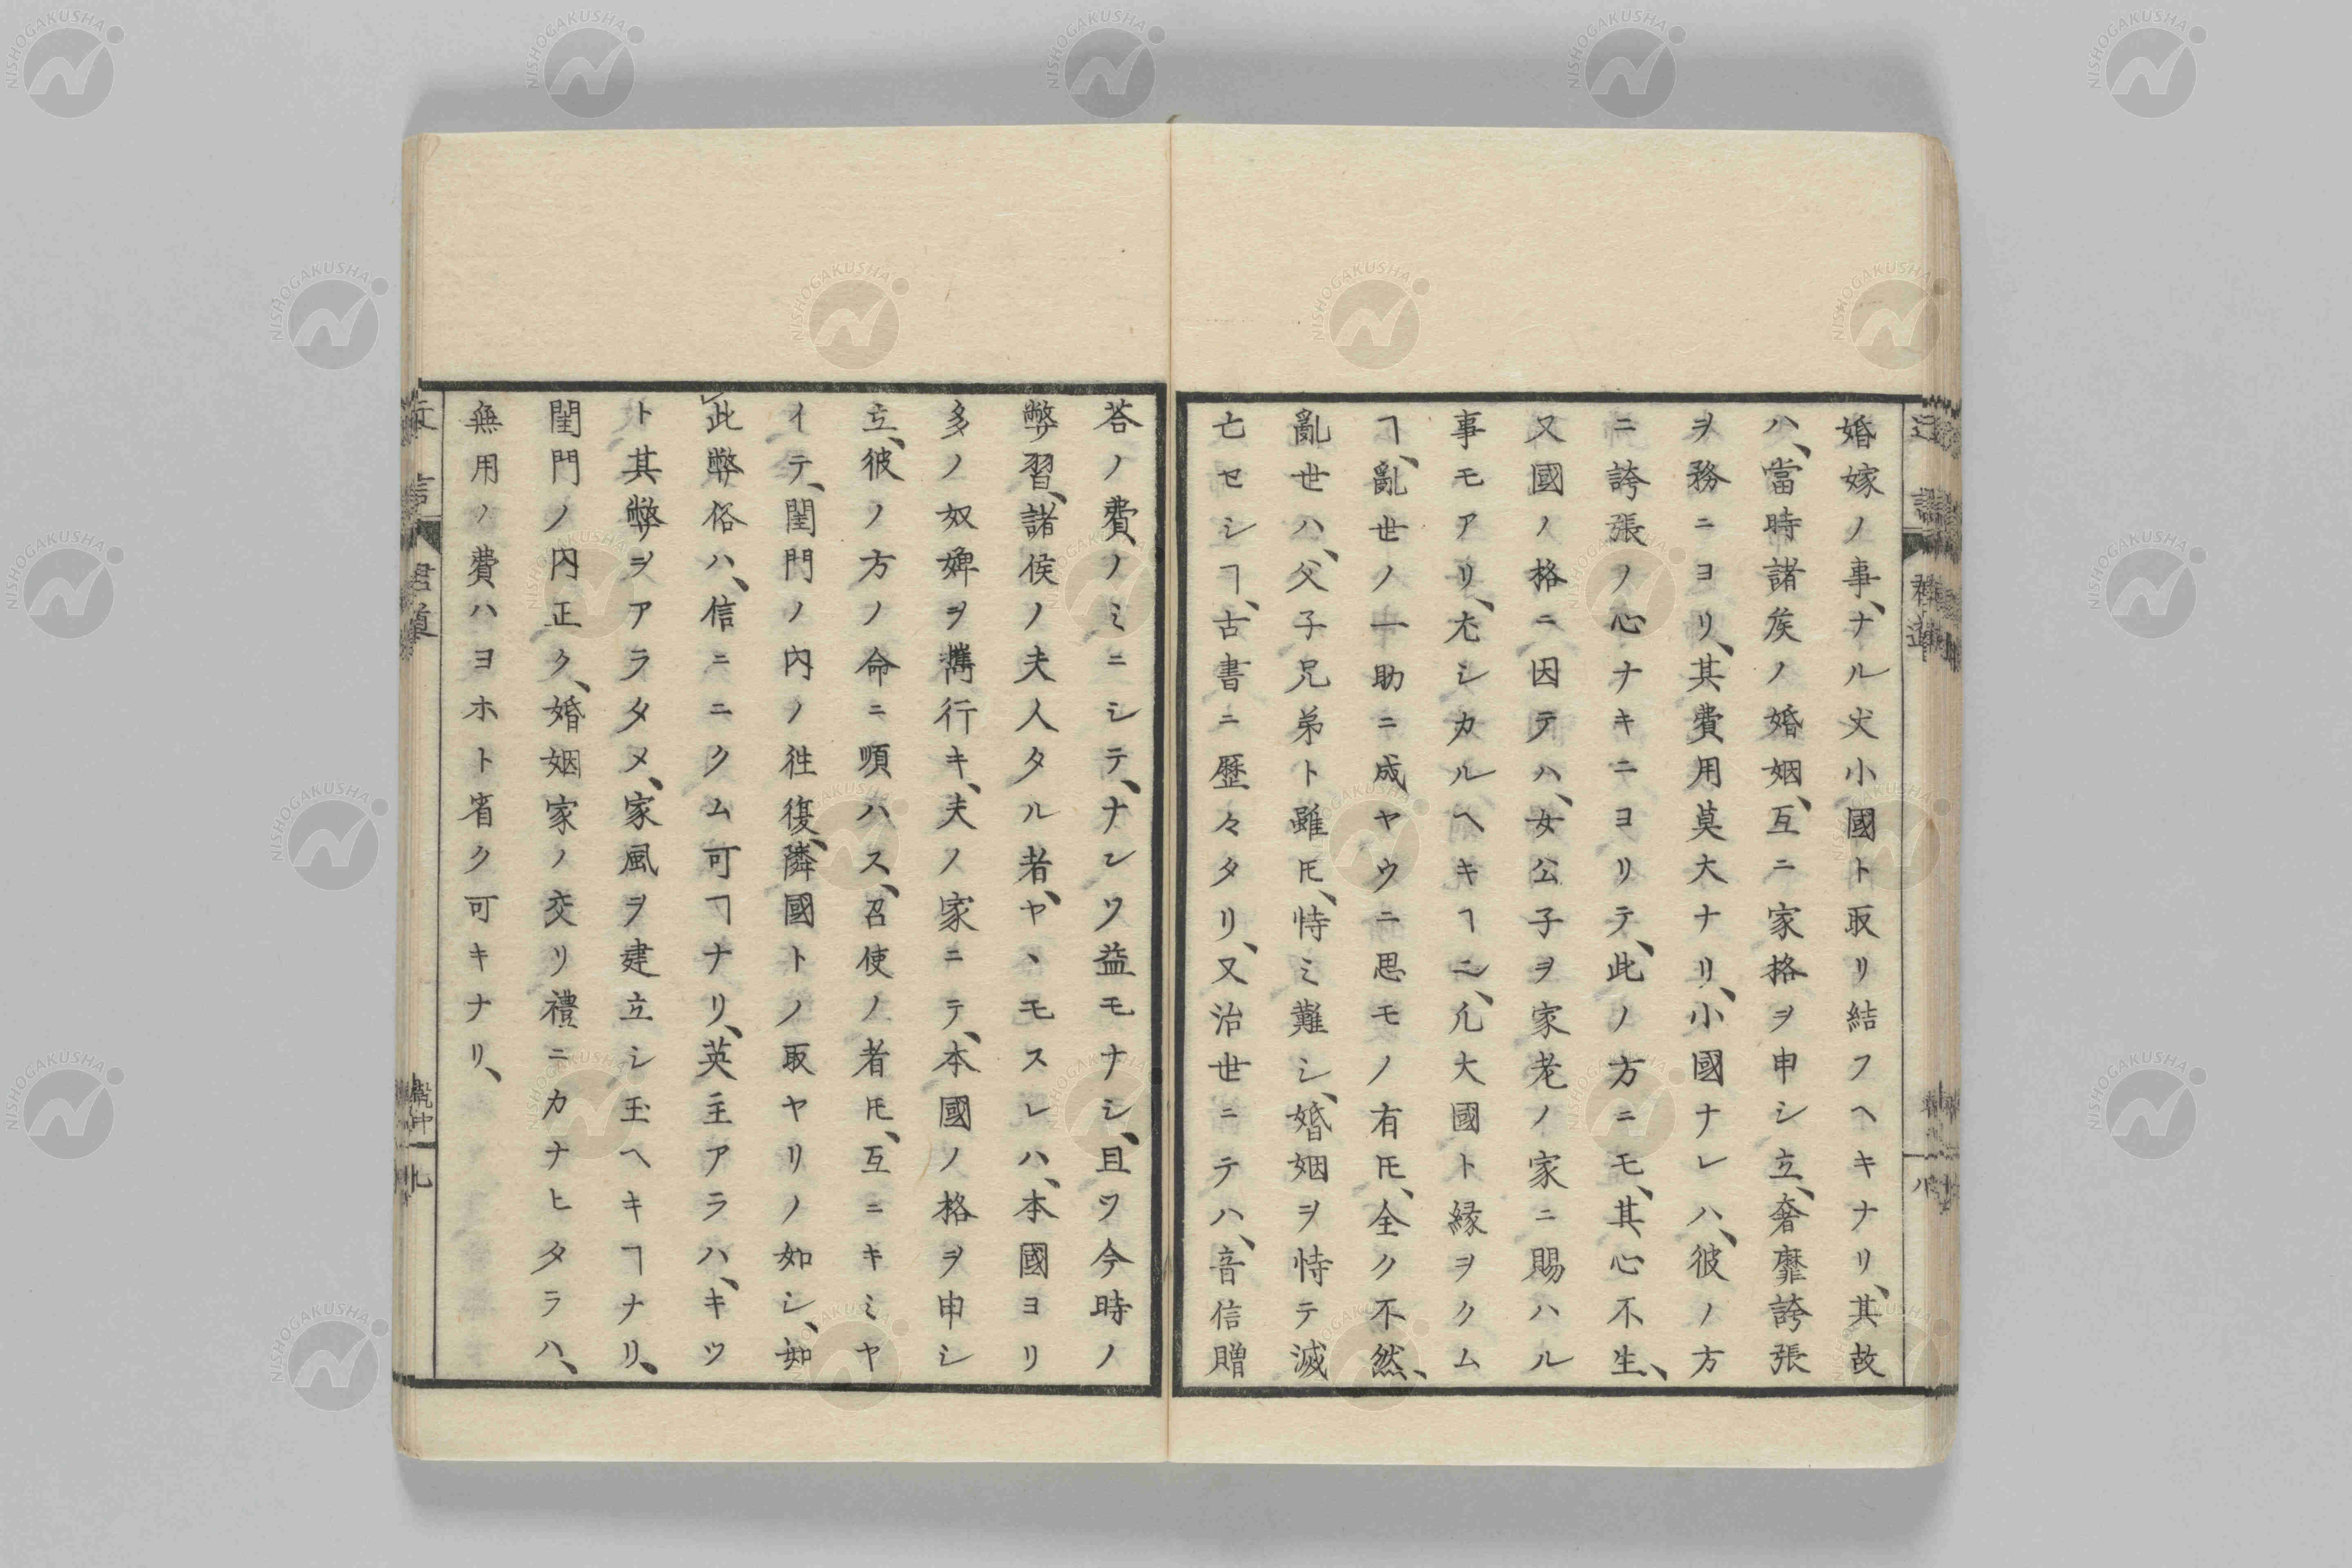 婚嫁ノ事、ナル丈小國ト取リ結フヘキナリ、其故
ハ、當時諸矦ノ婚姻、互ニ家格ヲ申シ立、奢靡誇張
ヲ務ニヨリ、其費用莫大ナリ、小國ナレハ、彼ノ方
ニ誇張ノ心ナキニヨリテ、此ノ方ニモ、其心不生、
又國ノ格ニ因テハ、女公子ヲ家老ノ家ニ賜ハル
事モアリ、尤シカルヘキヿニ、凢大國ト縁ヲクム
ヿ、亂世ノ一助ニ成ヤウニ思モノ有𪜈、全ク不然、
亂世ハ、父子兄弟ト雖𪜈、恃ミ難シ、婚姻ヲ恃テ滅
亡セシヿ、古書ニ歷々タリ、又治世ニテハ、音信贈
荅ノ費ノミニシテ、ナンノ益モナシ、且ツ今時ノ
弊習、諸侯ノ夫人タル者、ヤヽモスレハ、本國ヨリ
多ノ奴婢ヲ携行キ、夫ノ家ニテ、本國ノ格ヲ申シ
立、彼ノ方ノ命ニ順ハス、召使ノ者𪜈、互ニキミヤ
イテ、閨門ノ内ノ徃復、隣國トノ取ヤリノ如シ、如
此弊俗ハ、信ニニクム可ヿナリ、英主アラハ、キツ
ト其弊ヲアラタメ、家風ヲ建立シ玉ヘキヿナリ、
閨門ノ内正ク、婚姻家ノ交リ禮ニカナヒタラハ、
無用ノ費ハヨホト省ク可キナリ、
君道
NISHOGAKUSHA